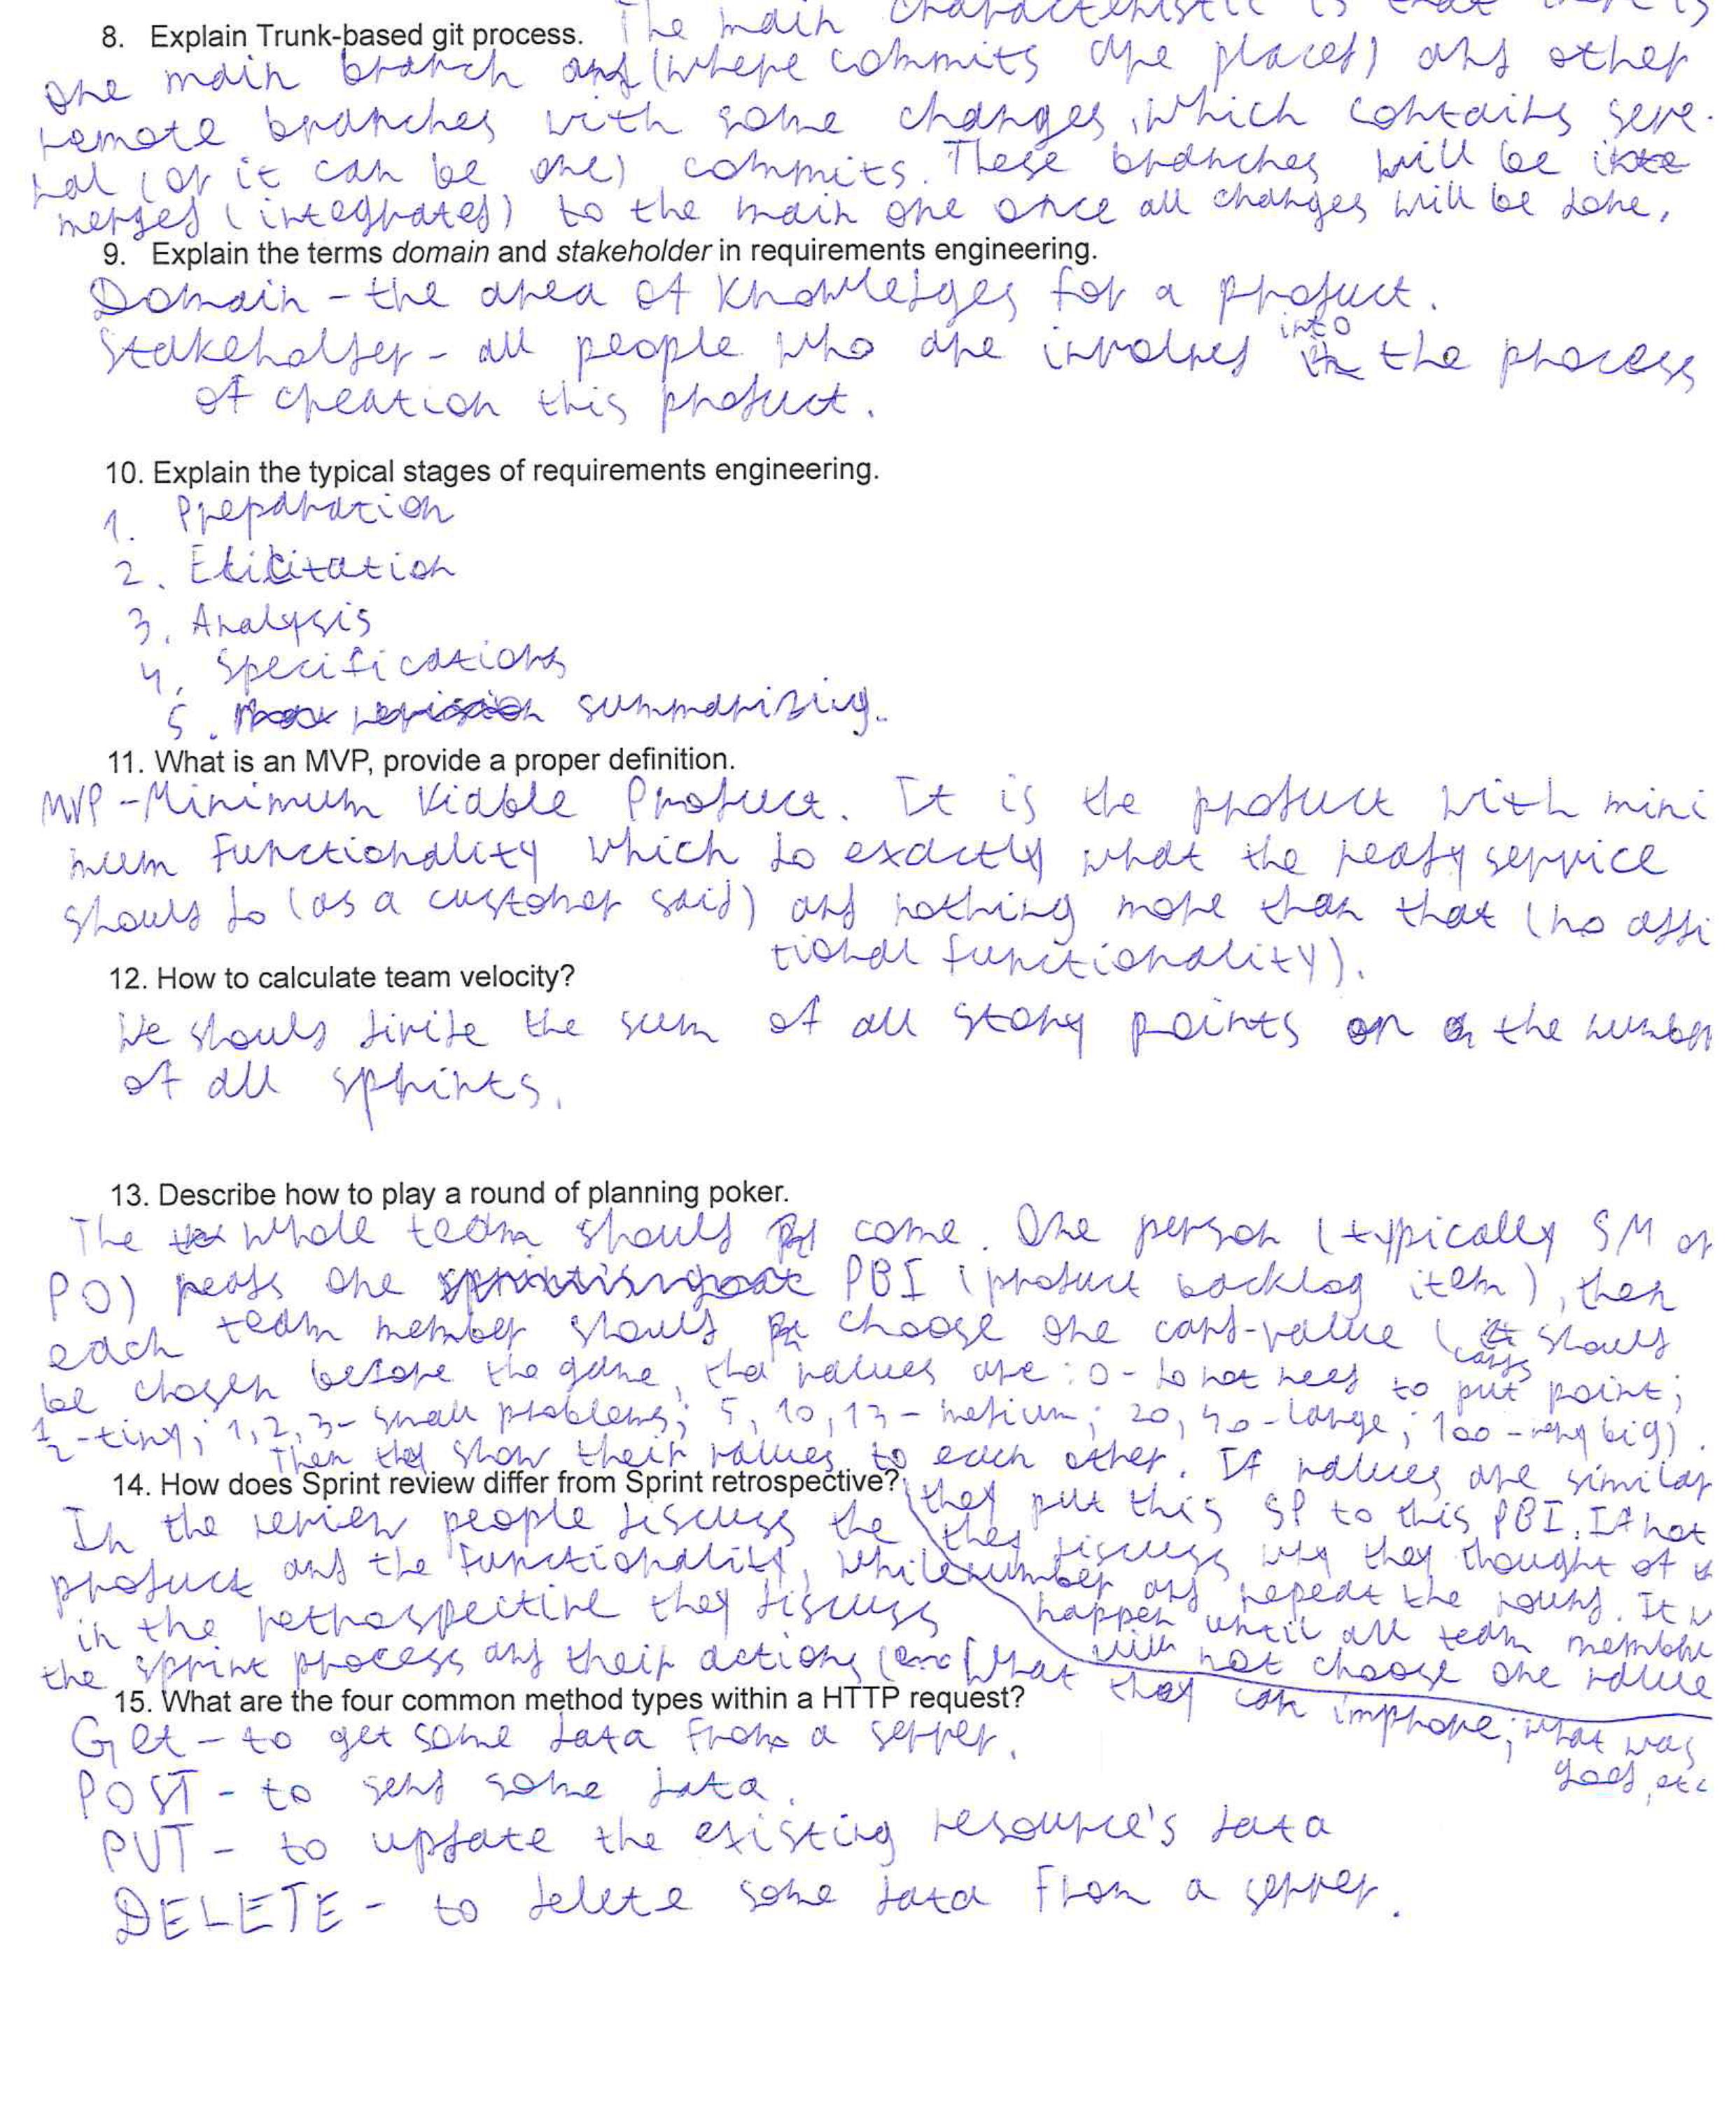 8. Explain Trunk-based git process. The main characteristic is that there is
one main branch and (where commits are placed) and other
remote branches with some changes, which contains seve-
ral (or it can be one) commits. These branches will be
merged (integrated) to the main one once all changes will be done.
9. Explain the terms domain and stakeholder in requirements engineering.
Domain - the area of knowledges for a product.
Stakeholder - all people who are involved into the process
of creation this product.
10. Explain the typical stages of requirements engineering.
1. Preparation
2. Elicitation
3. Analysis
4. Specifications
5. summarizing.
11. What is an MVP, provide a proper definition.
MVP - Minimum Viable Product. It is the product with mini
mum functionality which do exactly what the ready service
should do (as a customer said) and nothing more than that (no addi
tional functionality).
12. How to calculate team velocity?
We should divide the sum of all story points on the number
of all sprints.
13. Describe how to play a round of planning poker.
The whole team should come. One person (typically SM or
PO) reads one PBI (product backlog item), then
each team member should choose one card-value (cards should
be chosen before the game, the values are: 0 - do not need to put point;
1/2 - tiny; 1, 2, 3 - small problems; 5, 10, 13 - medium; 20, 40 - large; 100 - very big).
Then they show their values to each other. If values are similar
they put this SP to this PBI. If not
they discuss why they thought of
number and repeat the round. It
happen until all team membe
will not choose one value
14. How does Sprint review differ from Sprint retrospective?
In the review people discuss the
product and the functionality, while
in the retrospective they discuss
the sprint process and their actions (what they can improve; what was
good, etc
15. What are the four common method types within a HTTP request?
Get - to get some data from a server.
POST - to send some data.
PUT - to update the existing resource's data
DELETE - to delete some data from a server.